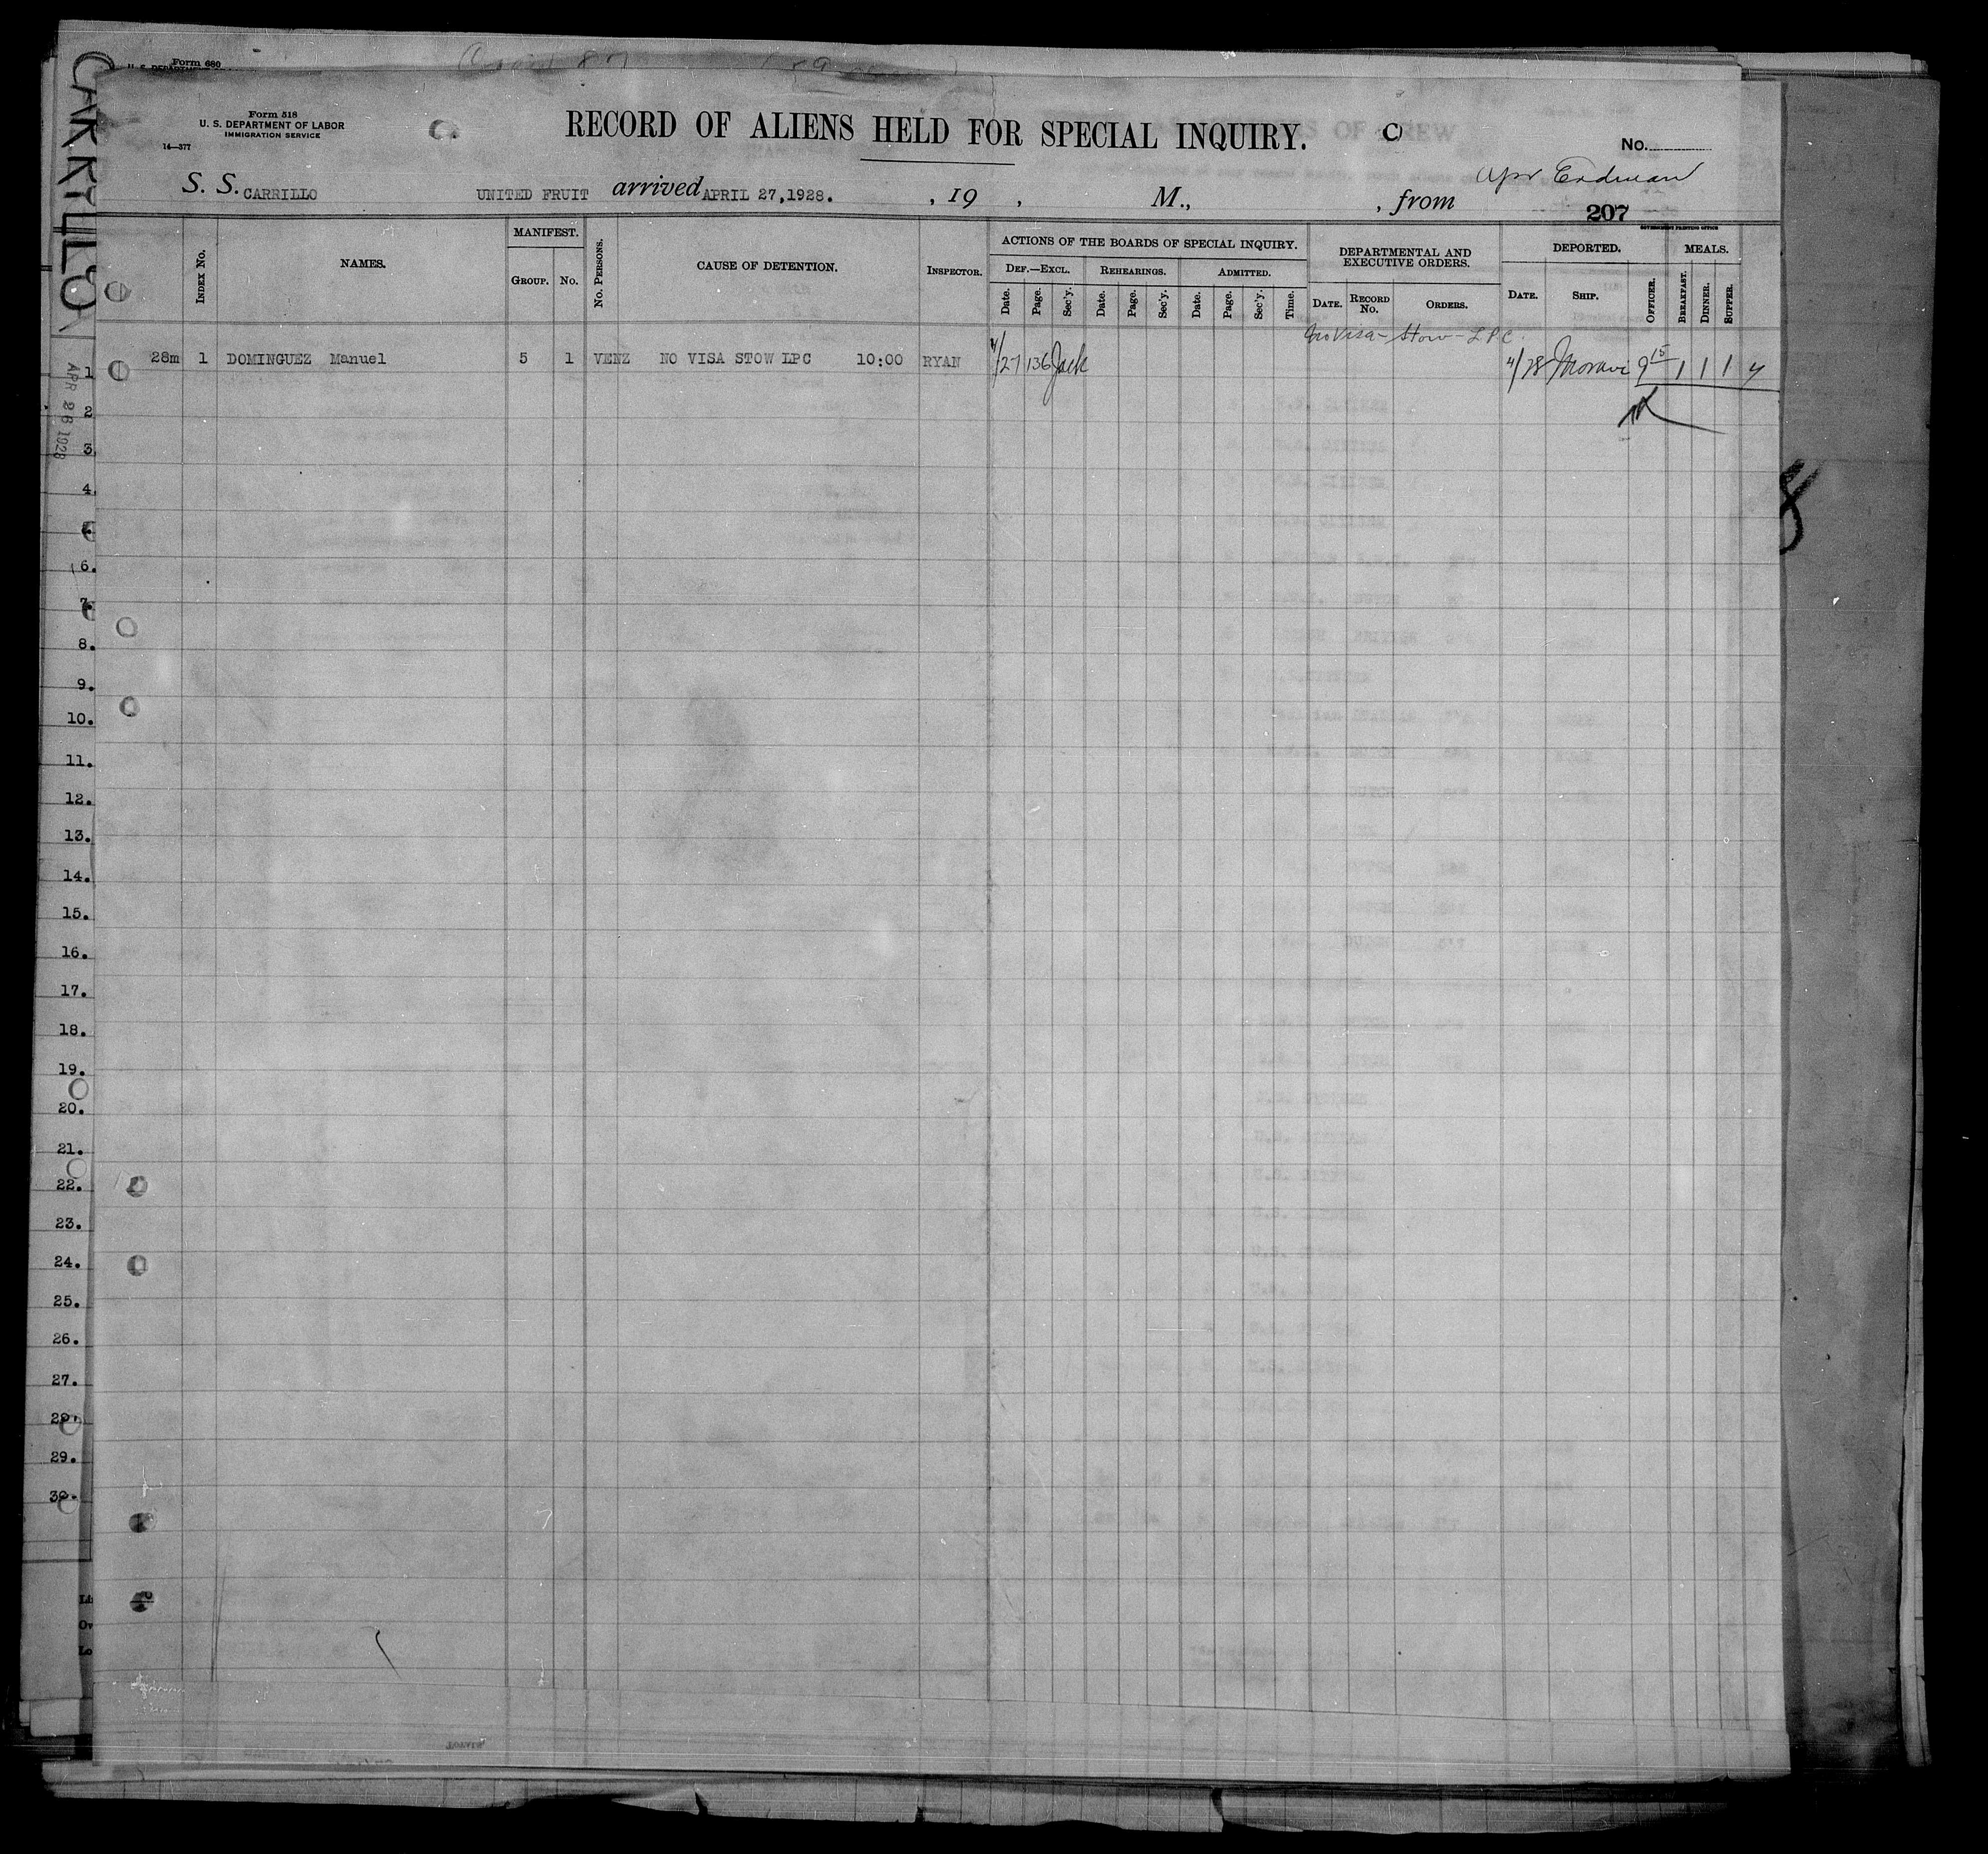 CARRILLO
Form 680
Form 518
U. S. DEPARTMENT OF LABOR
IMMIGRATION SERVICE
14—377
RECORD OF ALIENS HELD FOR SPECIAL INQUIRY.
No.
S. S. CARRILLO UNITED FRUIT arrived APRIL 27,1928. , 19 , M., , from
207
GOVERNMENT PRINTING OFFICE
INDEX No.
NAMES.
MANIFEST.
GROUP. No.
No. PERSONS.
CAUSE OF DETENTION.
INSPECTOR.
ACTIONS OF THE BOARDS OF SPECIAL INQUIRY.
DEF.—EXCL. REHEARINGS. ADMITTED.
Date. Page. Sec'y. Date. Page. Sec'y. Date. Page. Sec'y. Time.
DEPARTMENTAL AND
EXECUTIVE ORDERS.
DATE. RECORD No. ORDERS.
DEPORTED.
DATE. SHIP. OFFICER.
MEALS.
BREAKFAST. DINNER. SUPPER.
No Visa - Stow - LPC
28m 1 DOMINGUEZ Manuel 5 1 VENZ NO VISA STOW LPC 10:00 RYAN 4/27 136 Jack 4/28 9 15 1 1 1
APR 26 1928
1
2
3
4
5
6.
7.
8.
9.
10.
11.
12.
13.
14.
15.
16.
17.
18.
19.
20.
21.
22.
23.
24.
25.
26.
27.
28.
29.
30.
8